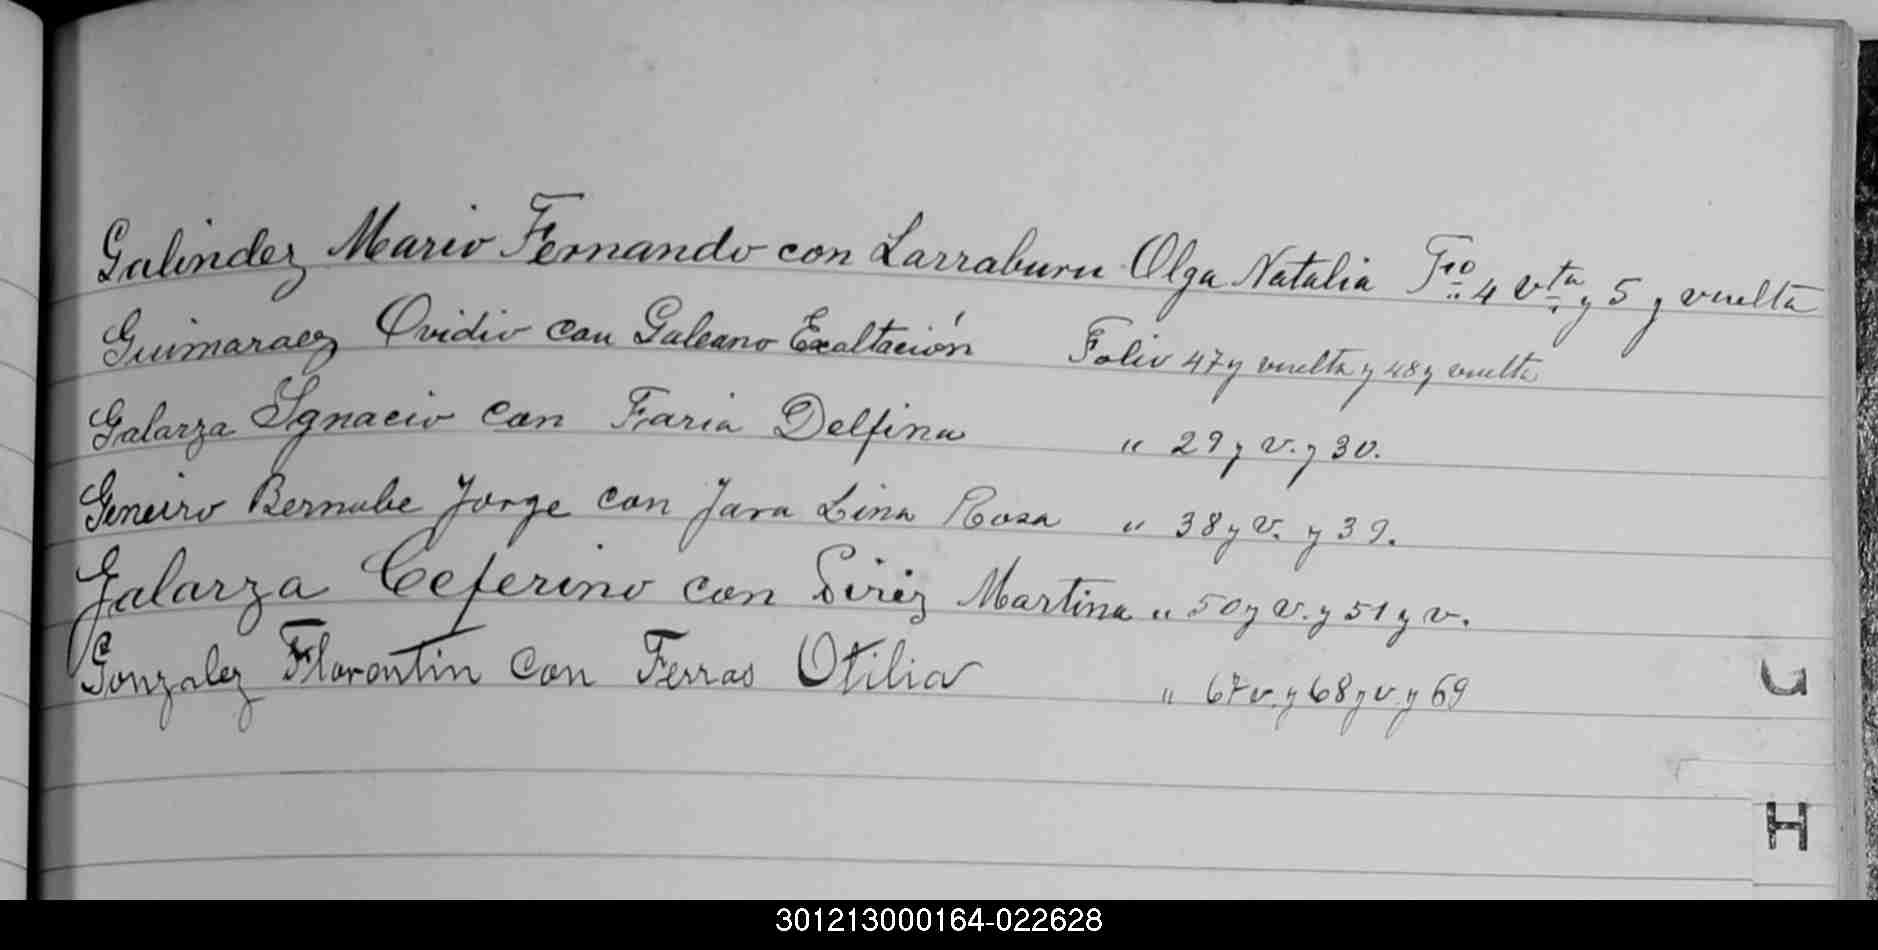 Galindez Mario Fernando con Larraburu Olga Natalia Fro 4 vta y 5 y vuelta
Guimaraez Ovidio con Galeano Exaltación Folio 47 y vuelta y 48 y vuelta
Galarza Ignacio con Faria Delfina " 29 y v. y 30.
Geneiro Bernabe Jorge con Jara Lina Rosa " 38 y v. y 39.
Galarza Ceferino con Piriz Martina " 50 y v. y 51 y v.
Gonzalez Florentin con Ferras Otilia " 67 v. y 68 y v. y 69
G
H
301213000164-022628